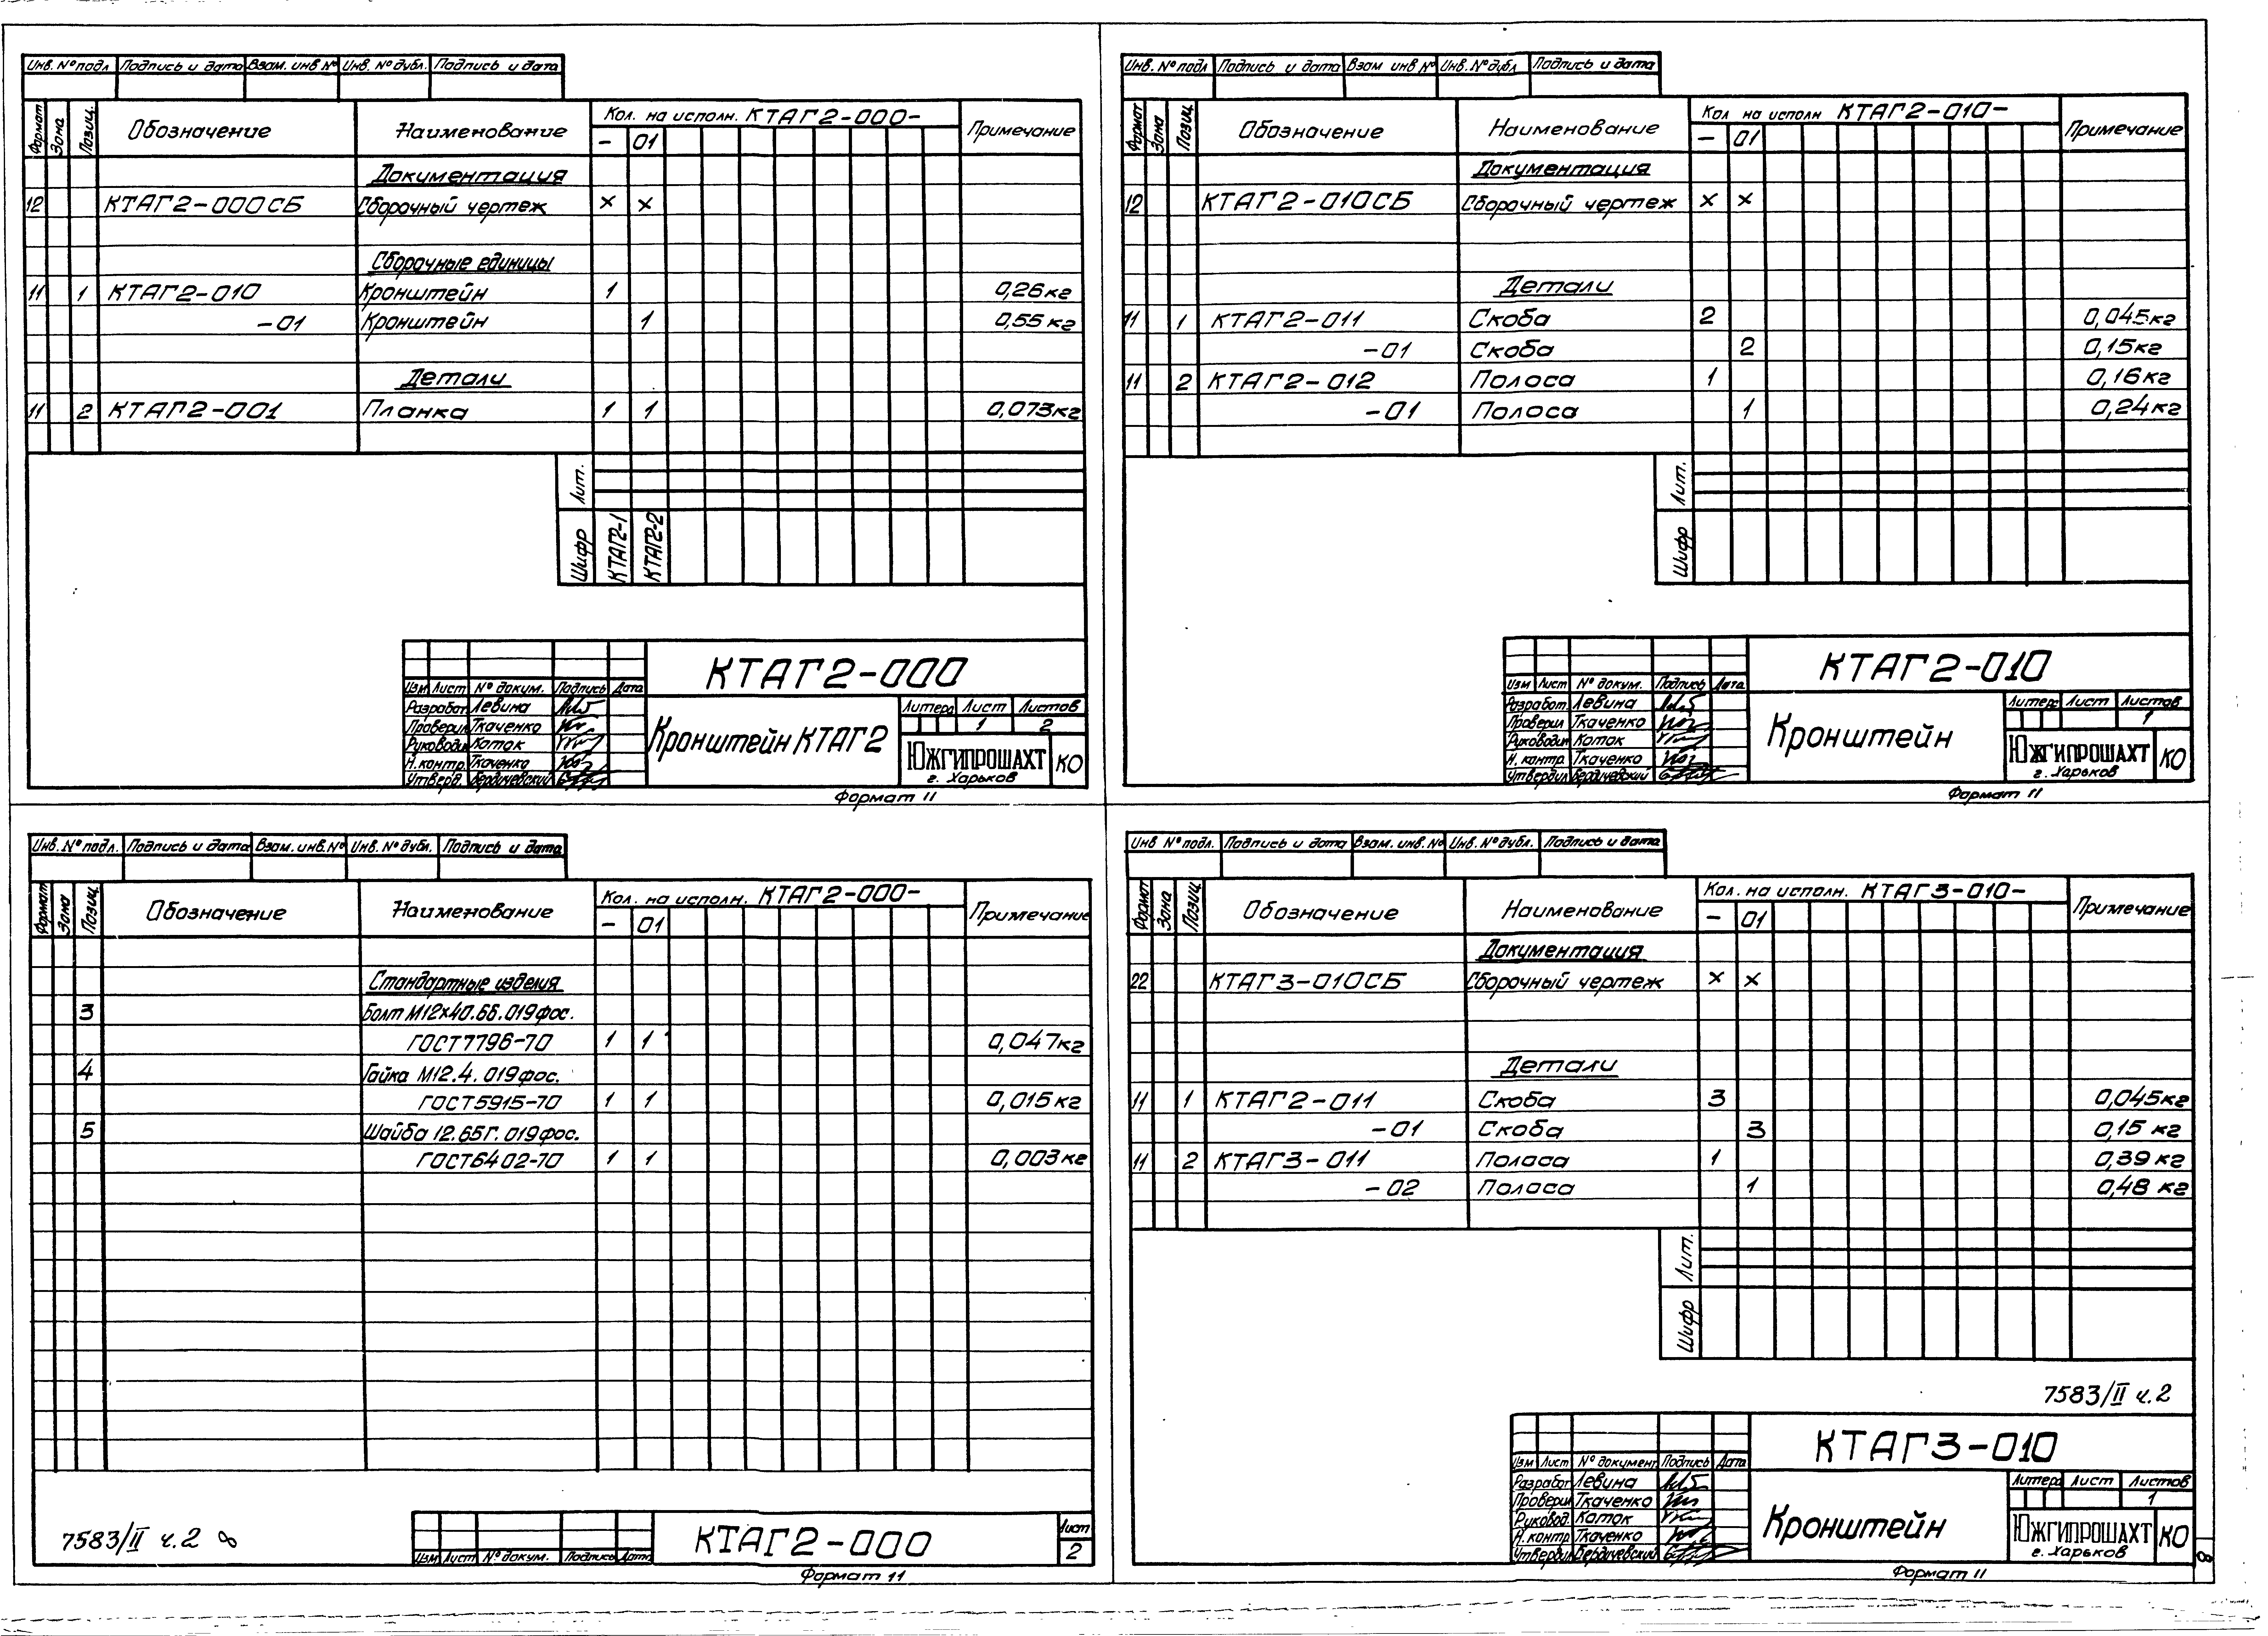 Инв. № подл Подпись и дата Взам. инв № Инв. № дубл. Подпись и дата
Формат Зона Позиц. Обозначение Наименование Кол. на исполн. КТАГ2-000- Примечание
- 01
Документация
12 КТАГ2-000СБ Сборочный чертеж × ×
Сборочные единицы
11 1 КТАГ2-010 Кронштейн 1 0,26кг
-01 Кронштейн 1 0,55кг
Детали
11 2 КТАГ2-001 Планка 1 1 0,073кг
Лит.
Шифр КТАГ2-1 КТАГ2-2
КТАГ2-000
Изм Лист № докум. Подпись Дата
Разработ. Левина
Проверил Ткаченко
Руководит Коток
Н.контр. Ткаченко
Утверд. Бердичевский
Кронштейн КТАГ2
Литера Лист Листов
1 2
ЮЖГИПРОШАХТ
г. Харьков
КО
Формат 11
Инв. № подл Подпись и дата Взам инв № Инв. № дубл Подпись и дата
Формат Зона Позиц Обозначение Наименование Кол на исполн КТАГ2-010- Примечание
- 01
Документация
12 КТАГ2-010СБ Сборочный чертеж × ×
Детали
11 1 КТАГ2-011 Скоба 2 0,045кг
-01 Скоба 2 0,15кг
11 2 КТАГ2-012 Полоса 1 0,16кг
-01 Полоса 1 0,24кг
Лит.
Шифр
КТАГ2-010
Изм Лист № докум. Подпись Дата
Разработ. Левина
Проверил Ткаченко
Руководит Коток
Н. контр. Ткаченко
Утвердил Бердичевский
Кронштейн
Литера Лист Листов
1
ЮЖГИПРОШАХТ
г. Харьков
КО
Формат 11
Инв. № подл. Подпись и дата Взам. инв. № Инв. № дубл. Подпись и дата
Формат Зона Позиц Обозначение Наименование Кол. на исполн. КТАГ2-000- Примечание
- 01
Стандартные изделия
3 Болт М12×40.66.019фос.
ГОСТ7796-70 1 1 0,047кг
4 Гайка М12.4.019фос.
ГОСТ5915-70 1 1 0,015кг
5 Шайба 12.65Г.019фос.
ГОСТ6402-70 1 1 0,003кг
7583/II ч.2 8
Изм Лист № докум. Подпись Дата
КТАГ2-000
Лист
2
Формат 11
Инв № подл. Подпись и дата Взам. инв. № Инв. № дубл. Подпись и дата
Формат Зона Позиц Обозначение Наименование Кол. на исполн. КТАГ3-010- Примечание
- 01
Документация
22 КТАГ3-010СБ Сборочный чертеж × ×
Детали
11 1 КТАГ2-011 Скоба 3 0,045кг
-01 Скоба 3 0,15 кг
11 2 КТАГ3-011 Полоса 1 0,39 кг
-02 Полоса 1 0,48 кг
Лит.
Шифр
7583/II ч.2
КТАГ3-010
Изм Лист № документ Подпись Дата
Разработ Левина
Проверил Ткаченко
Руковод. Коток
Н.контр Ткаченко
Утвердил Бердичевский
Кронштейн
Литера Лист Листов
1
ЮЖГИПРОШАХТ
г. Харьков
КО
8
Формат 11